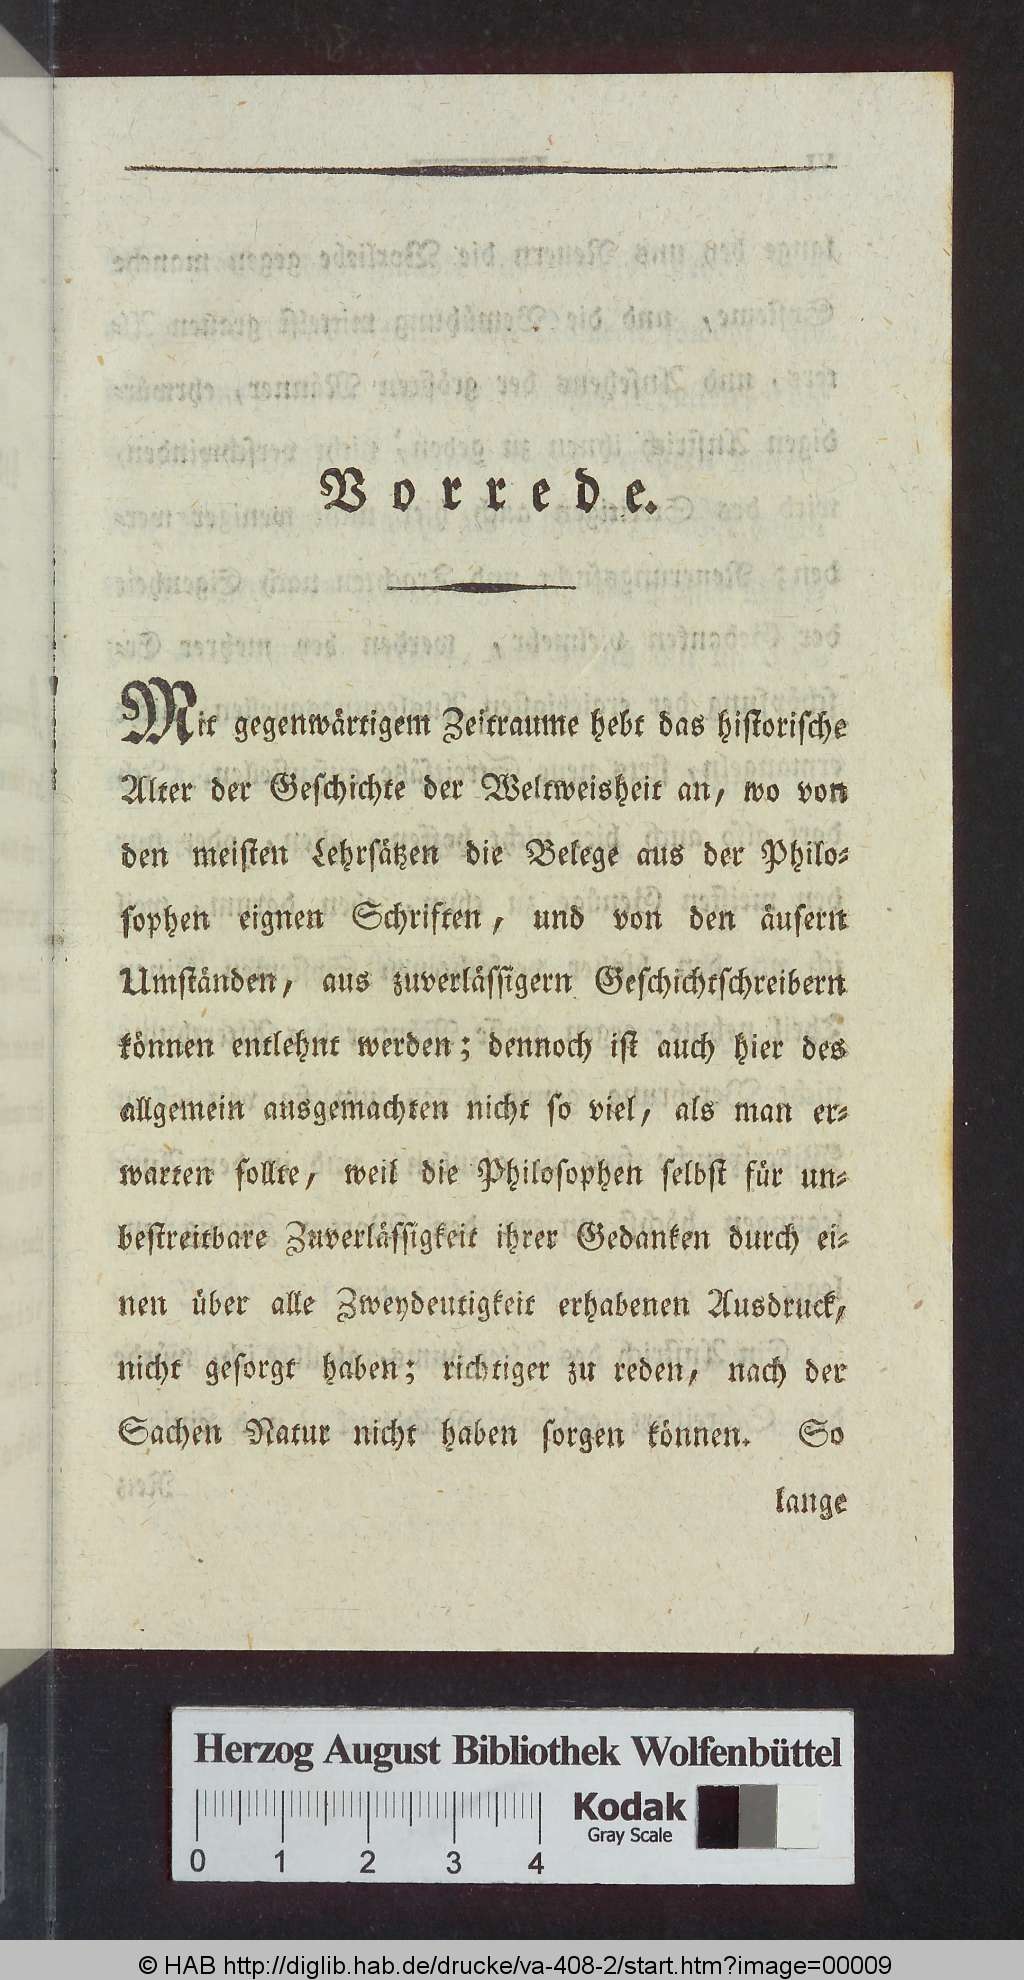 Vorrede.
Mit gegenwärtigem Zeitraume hebt das historische
Alter der Geschichte der Weltweisheit an, wo von
den meisten Lehrsätzen die Belege aus der Philo-
sophen eignen Schriften, und von den äusern
Umständen, aus zuverlässigern Geschichtschreibern
können entlehnt werden; dennoch ist auch hier des
allgemein ausgemachten nicht so viel, als man er-
warten sollte, weil die Philosophen selbst für un-
bestreitbare Zuverlässigkeit ihrer Gedanken durch ei-
nen über alle Zweydeutigkeit erhabenen Ausdruck,
nicht gesorgt haben; richtiger zu reden, nach der
Sachen Natur nicht haben sorgen können. So
lange
Herzog August Bibliothek Wolfenbüttel
Kodak
Gray Scale
0 1 2 3 4
© HAB http://diglib.hab.de/drucke/va-408-2/start.htm?image=00009